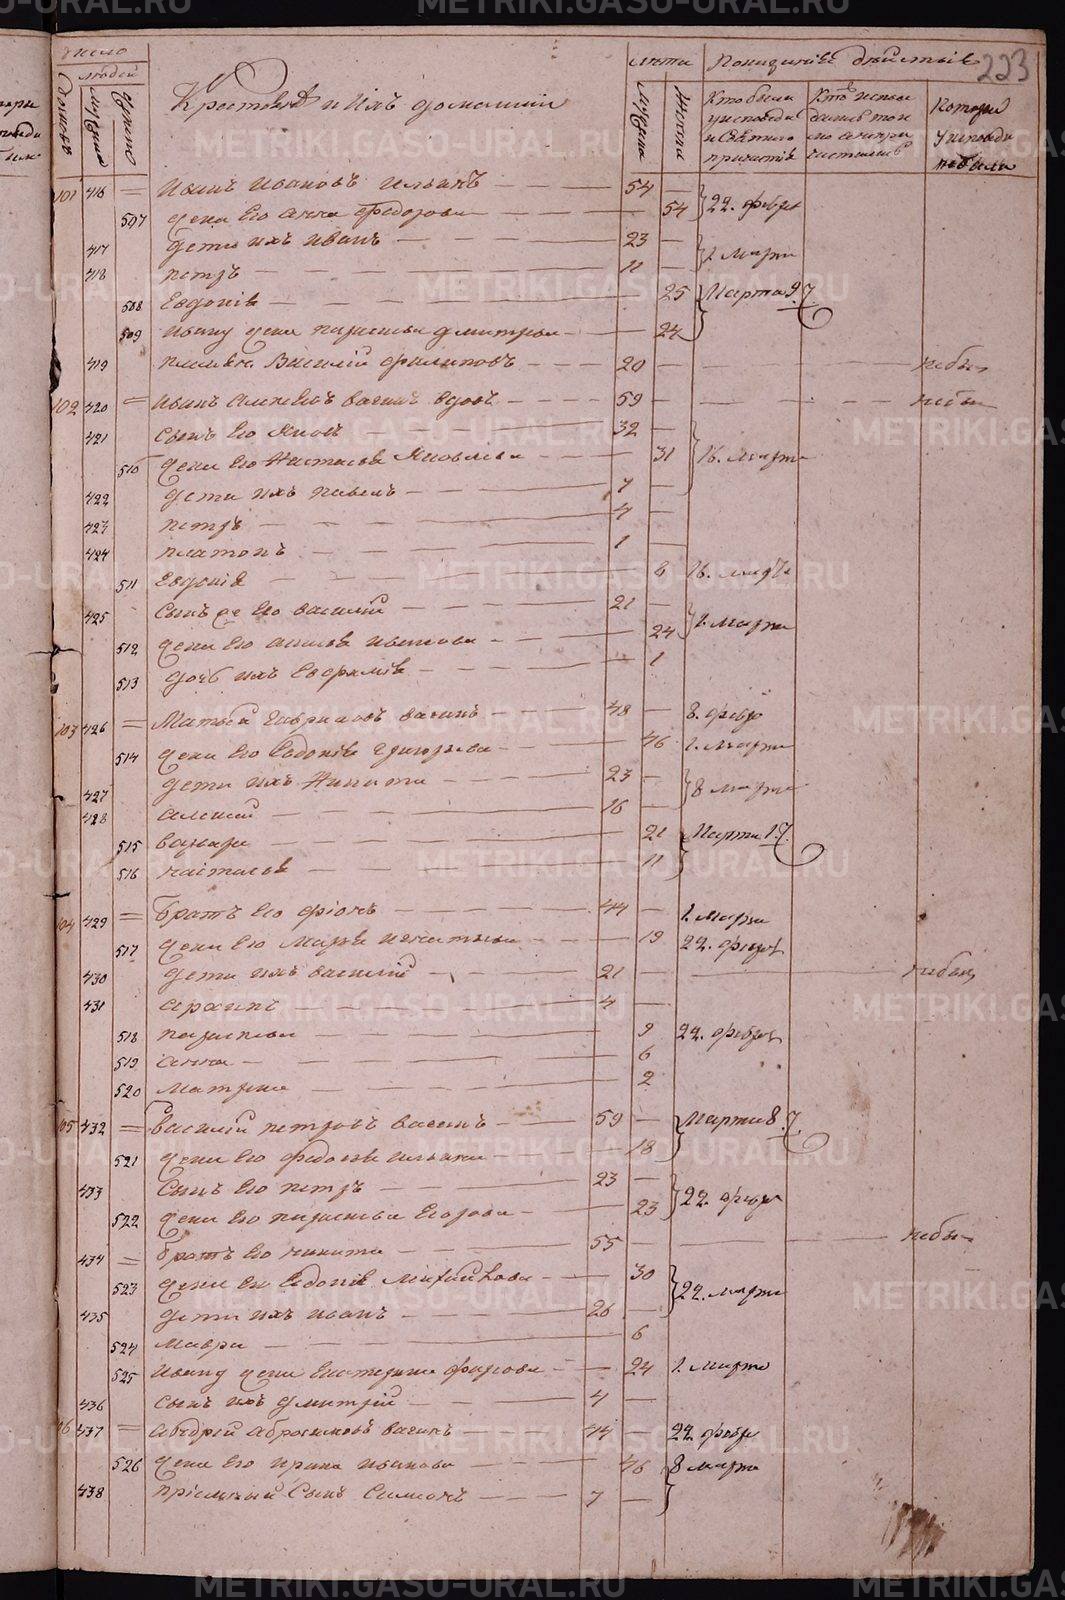 METRIKI.GASO-URAL.RU
223
число лѣта Показанїе дѣйствїя
домовъ людей мужеска женско Крестьянѣ и Ихъ домашнїи Мужеска Женска Кто были у исповеди и Святаго причастїя Кто исповедались токмо а не причастились Которыя у исповеди небыли
101 416 Иванъ Ивановъ Ильинъ 54 22. февра
507 жена Его Анна Федорова 54
417 дети ихъ Иванъ 23 1 Марта
418 петръ 11
508 Евдокїя 25 Марта 9
509 Ивану жена парасковья дмитрева 24
419 Василїй филиповъ 20 небы
102 420 Иванъ Алексѣевъ вагинъ вдовъ 59 небы
421 Сынъ Его Яковъ 32 16. Марта
510 жена Его Настасья Яковлева 31
422 дети ихъ павелъ 7
423 петръ 4
424 платонъ 1
511 Евдокїя 6 16. марта
425 Сынъ Его василїй 21 1. Марта
512 жена Его Иванова 24
513 дочь ихъ Евфимїя 1
103 426 Матвей Гавриловъ вагинъ 48 8. февра
514 жена Его Евдокїя Григорьева 46 1. марта
427 дети ихъ Никита 23 8 марта
428 алексей 16
515 варвара 21 Марта 1
516 настасья 11
104 429 Братъ Его 44 1. Марта
517 жена Его Марья Игнатьева 19 22. февра
430 дети ихъ василїй 21 небы
431 архипъ 4
518 парасковья 9 22. февра
519 анна 6
520 матрена 2
105 432 василїй петровъ вагинъ 59 Марта 8
521 жена Его федосья ильина 18
433 Сынъ Его петръ 23 22. февра
522 жена Его парасковья Егорова 23
434 братъ Его никита 55 небы
523 жена Его Евдокїя Михайлова 30 22. марта
435 дети ихъ Иванъ 26
524 мавра 6
525 Ивану жена Екатерина 24 1. марта
436 Сынъ ихъ дмитрїй 4
106 437 Андрей Абросимовъ вагинъ 44 22. февра
526 жена Его Ирина Иванова 46 8 марта
438 прїемный Сынъ Симеонъ 7